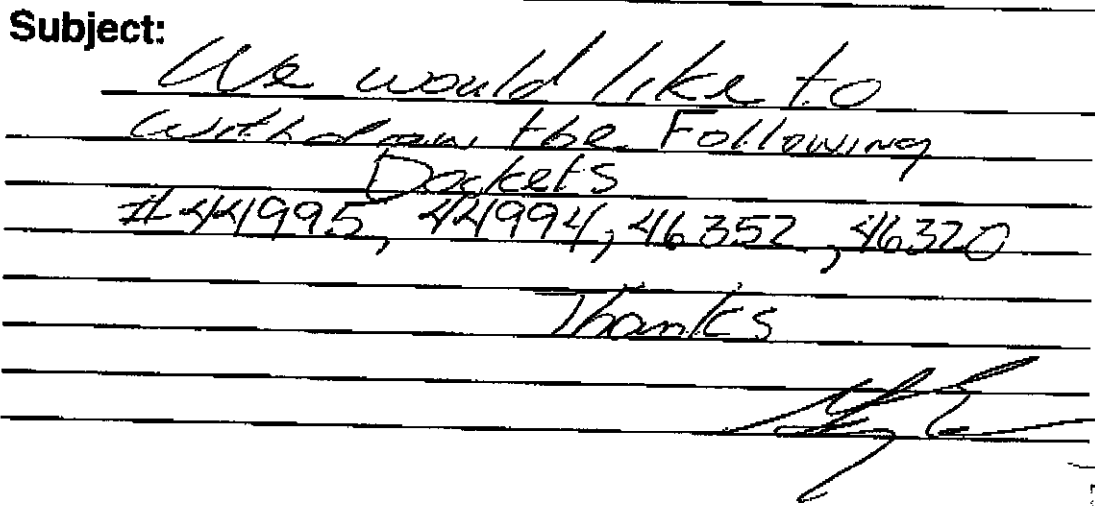 Subject:
We would like to
withdraw the Following
Dockets
#44995, 44994, 46352, 46320
Thanks